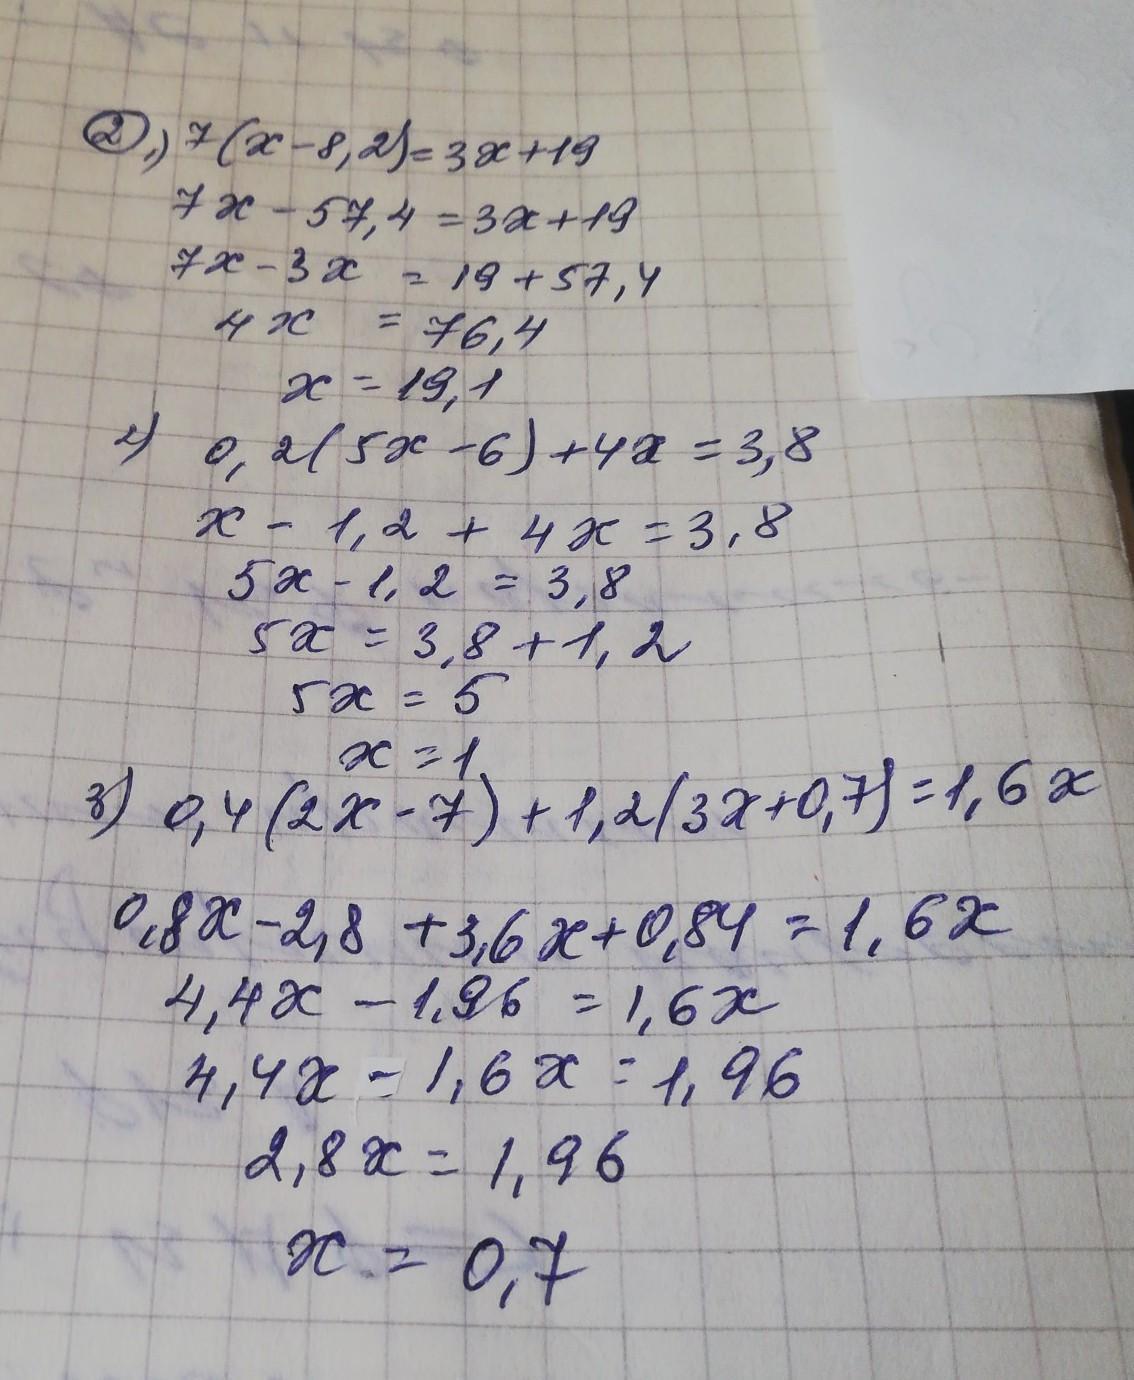 2.) 7(x-8,2)=3x+19
7x-57,4=3x+19
7x-3x = 19+57,4
4x = 76,4
x = 19,1
2) 0,2(5x-6)+4x=3,8
x-1,2+4x=3,8
5x-1,2=3,8
5x=3,8+1,2
5x=5
x=1
3) 0,4(2x-7)+1,2(3x+0,7)=1,6x
0,8x-2,8+3,6x+0,84=1,6x
4,4x-1,96=1,6x
4,4x-1,6x=1,96
2,8x=1,96
x=0,7